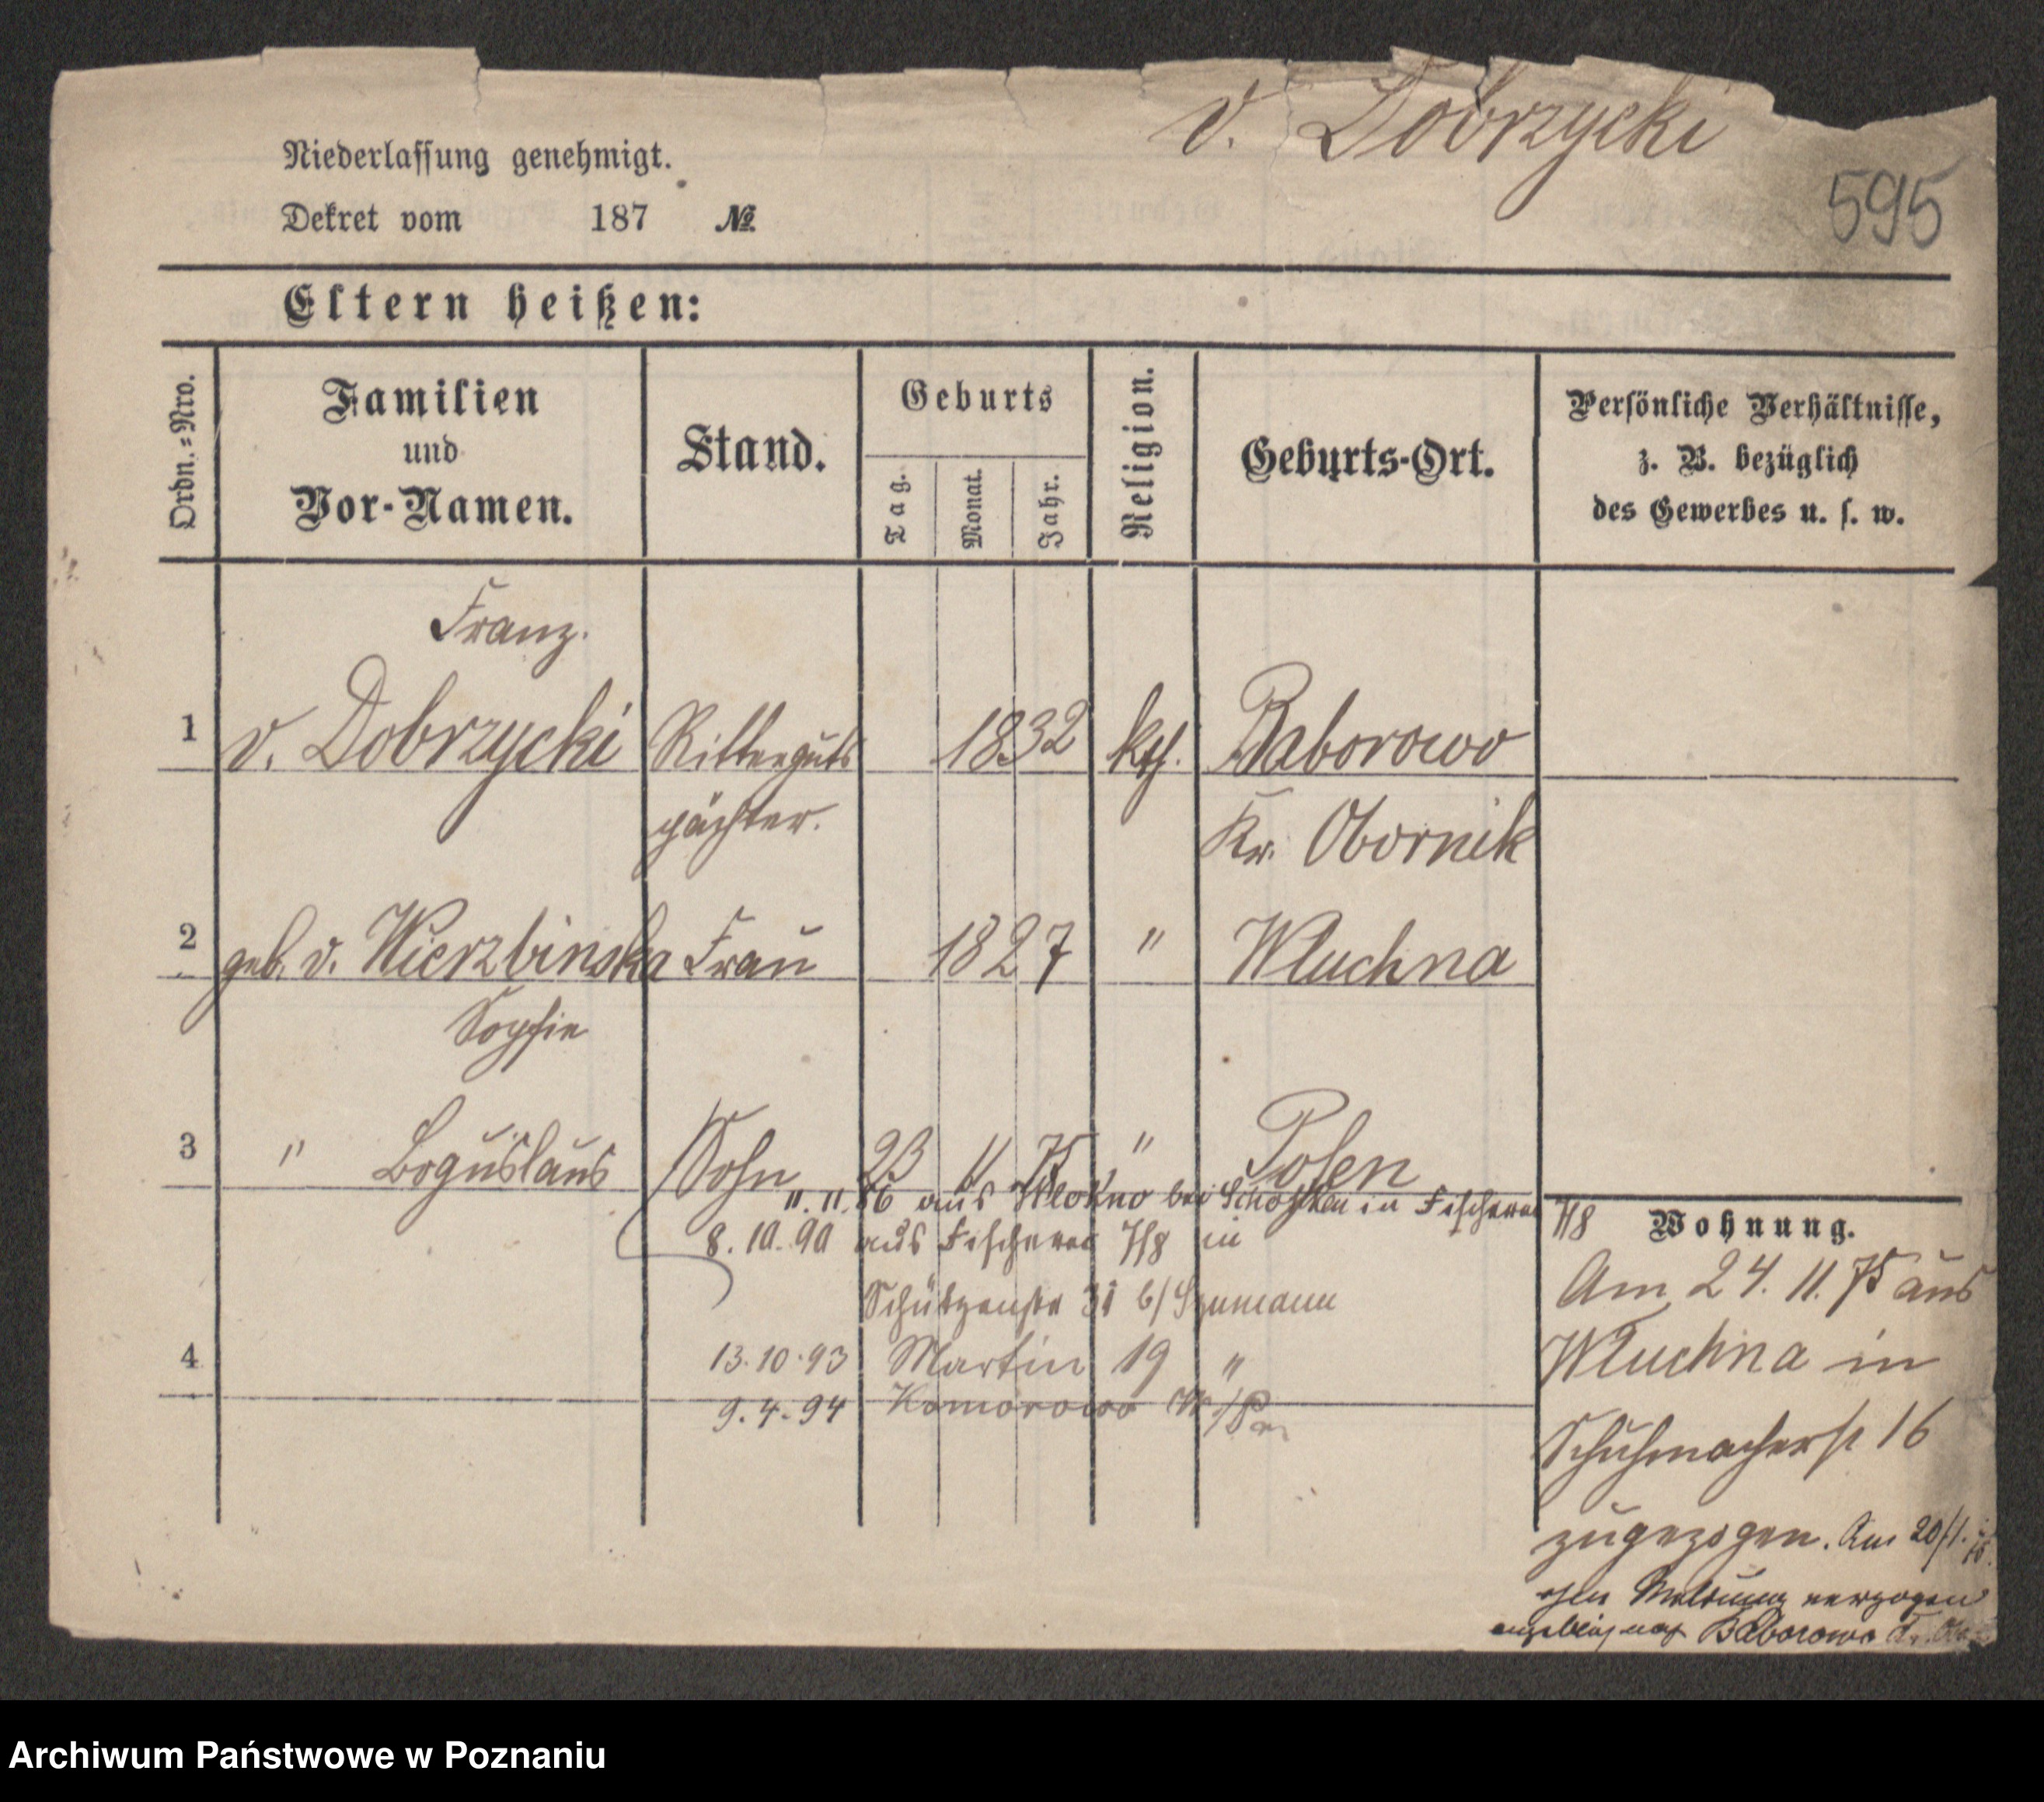 v. Dobrzycki
595
Niederlassung genehmigt.
Dekret vom 187 №
Eltern heißen:
Ordn.=Nro.
Familien
und
Vor-Namen.
Stand.
Geburts
Tag.
Monat.
Jahr.
Religion.
Geburts-Ort.
Persönliche Verhältnisse,
z. B. bezüglich
des Gewerbes u. s. w.
Franz.
1 v. Dobrzycki Ritterguts 1832 kth. Baborowo
pächter. Kr. Obornik
2 geb. v. Wierzbinska Frau 1827 " Wluchna
Sophie
3 " Boguslaus Sohn 23 4 75 " Posen
11. 11. 86 aus Wlokno bei Schokken in Fischerei 7/8
8. 10. 90 aus Fischerei 7/8 in
Schützenstr 31 b/ Szumann
4 13. 10. 93 Martin 19 "
9. 4. 94 Komorowo
Wohnung.
Am 24. 11. 75 aus
Wluchna in
Schuhmacherst 16
zugezogen. Am 20/1.
ohne Meldung verzogen
angeblich nach Baborowo
Archiwum Państwowe w Poznaniu